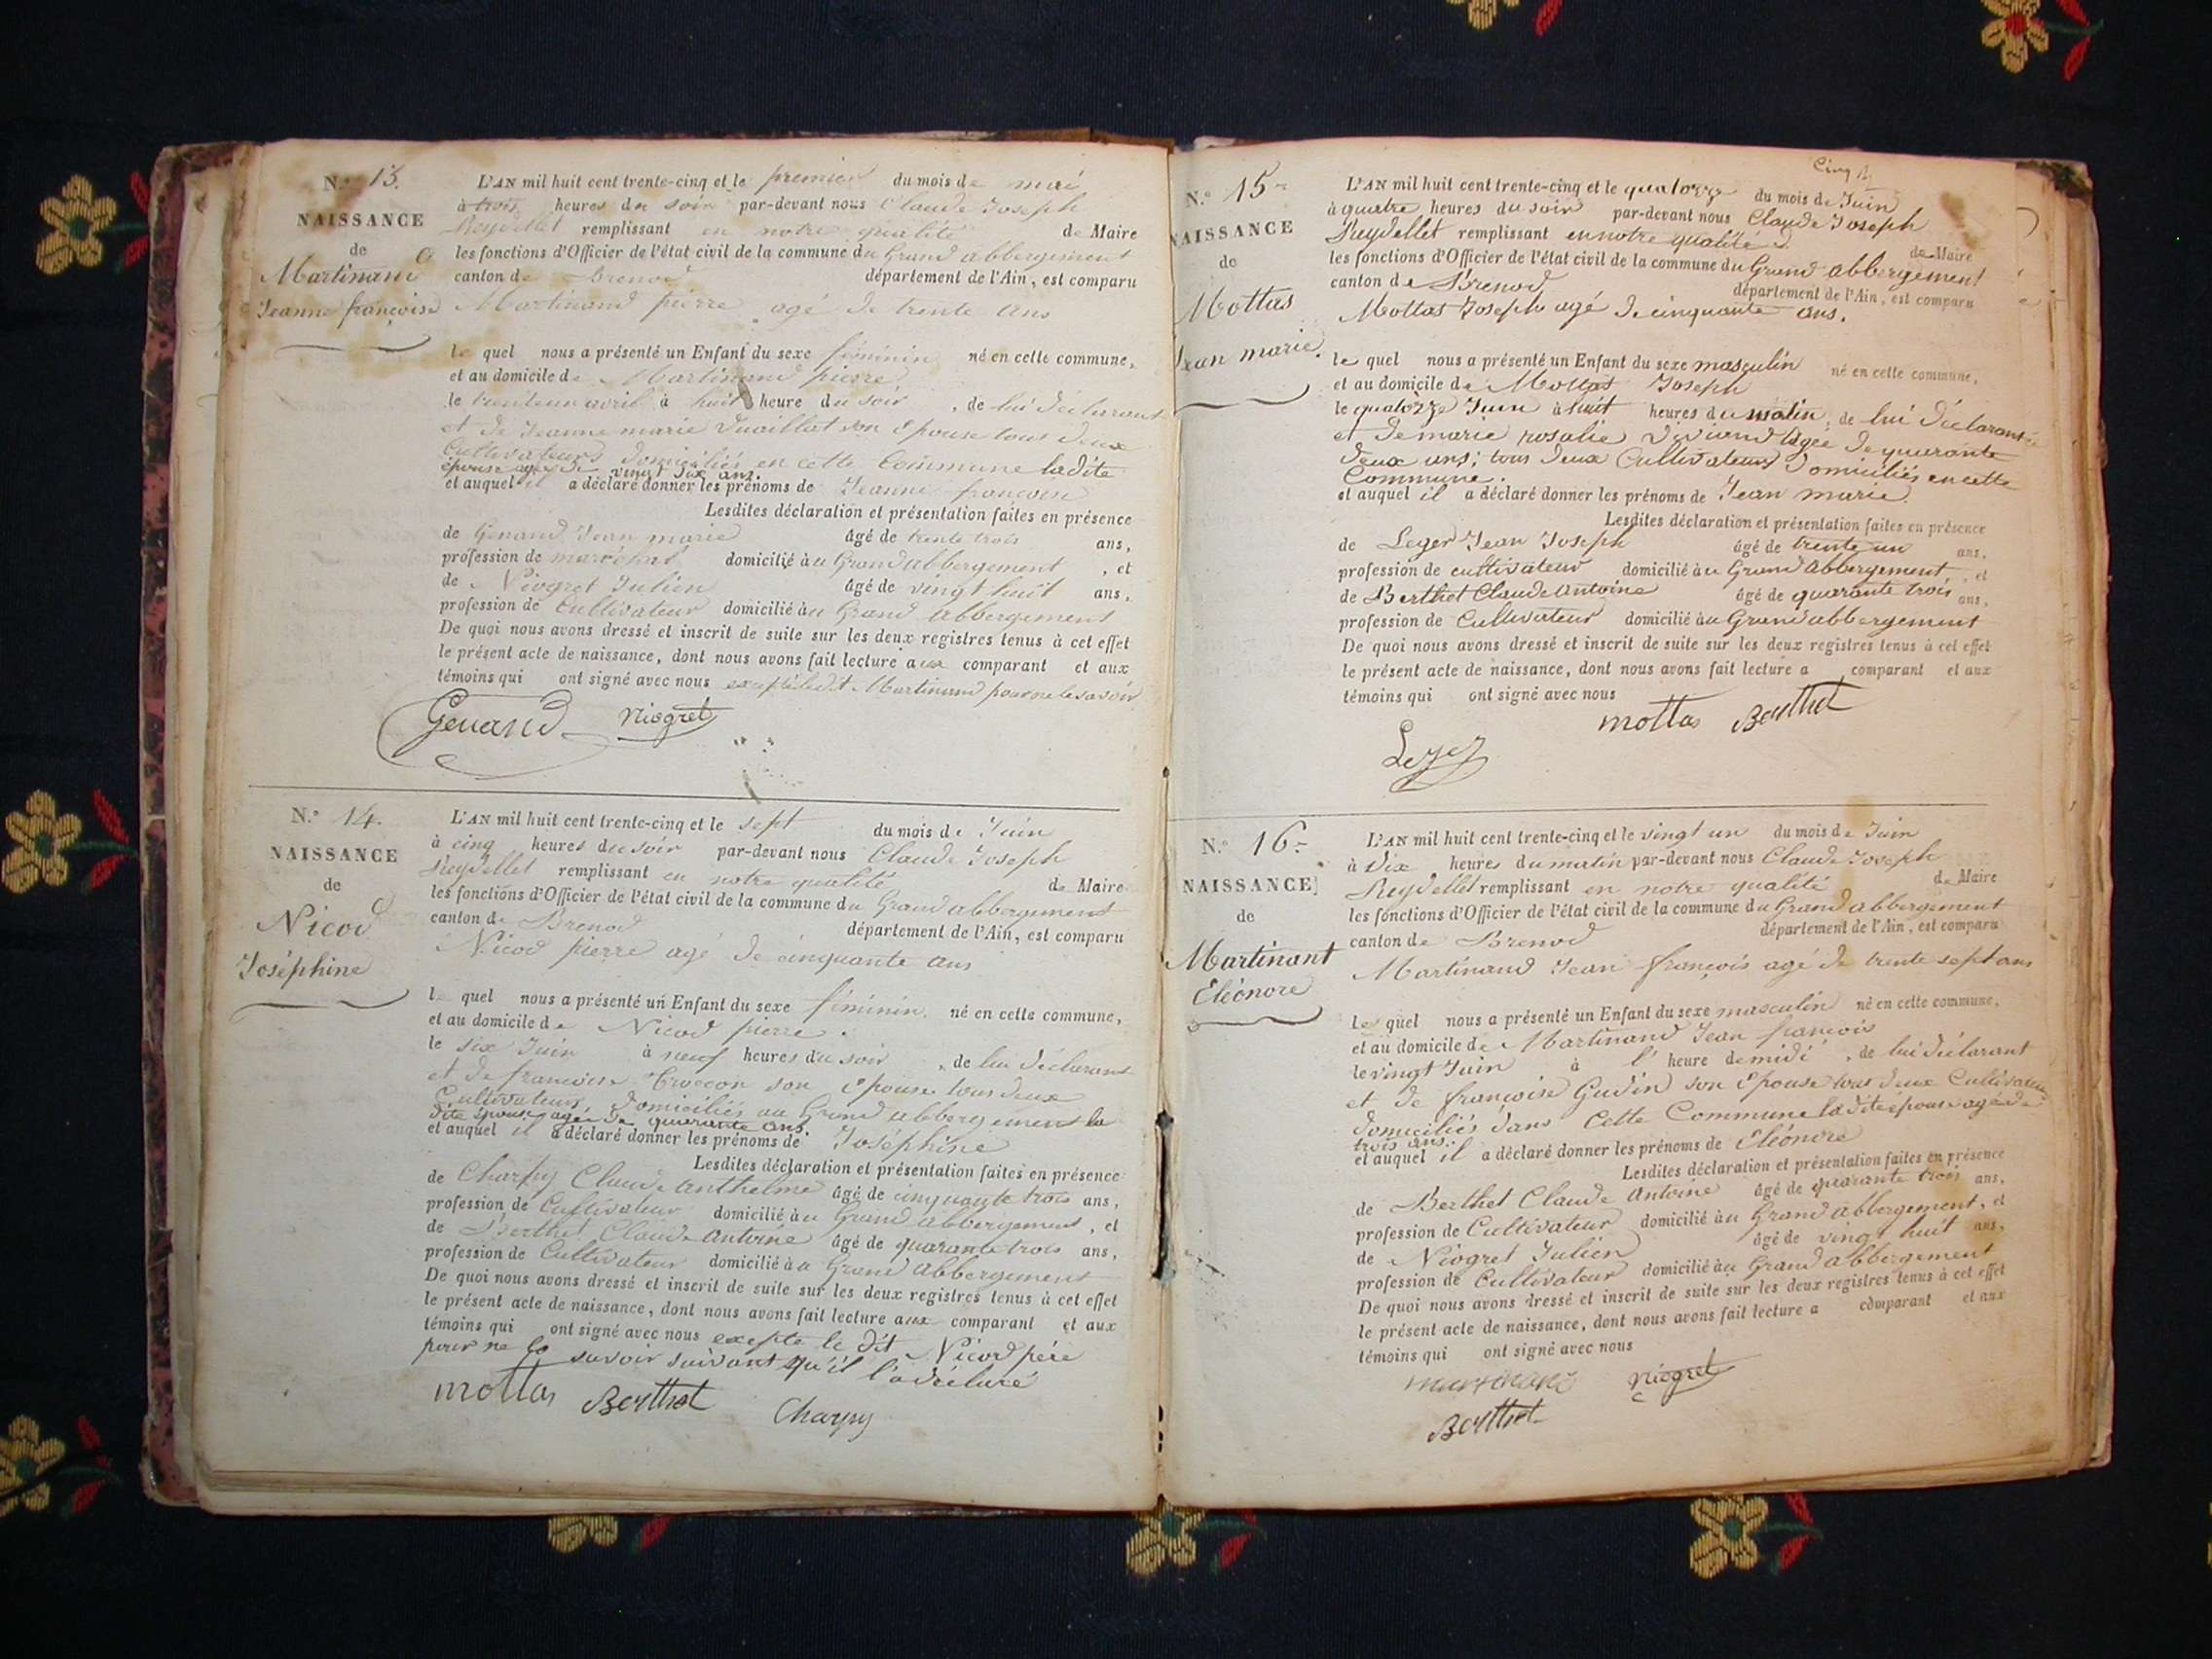 N.° 13.
NAISSANCE
de
Martinand
Jeanne françoise
L'AN mil huit cent trente-cinq et le premier du mois de mai
à trois heures du soir par-devant nous Claude Joseph
Reydellet remplissant en notre qualité de Maire
les fonctions d'Officier de l'état civil de la commune du Grand abbergement
canton de Brenod département de l'Ain, est comparu
Martinand pierre agé de trente ans
le quel nous a présenté un Enfant du sexe féminin né en cette commune,
et au domicile de Martinand pierre
le trente un avril à huit heure du soir, de lui déclarant
et de Jeanne marie son Epouse tous deux
Cultivateurs domiciliés en cette Commune ladite
épouse agée de vingt six ans.
et auquel il a déclaré donner les prénoms de Jeanne françoise
Lesdites déclaration et présentation faites en présence
de Genand Jean marie âgé de trente trois ans,
profession de maréchal domicilié au Grand abbergement, et
de Niogret Julien âgé de vingt huit ans,
profession de Cultivateur domicilié au Grand abbergement
De quoi nous avons dressé et inscrit de suite sur les deux registres tenus à cet effet
le présent acte de naissance, dont nous avons fait lecture aux comparant et aux
témoins qui ont signé avec nous excepté ledit Martinand pour ne le savoir
Genand Niogret
N.° 14.
NAISSANCE
de
Nicod
Joséphine
L'AN mil huit cent trente-cinq et le sept du mois de Juin
à cinq heures du soir par-devant nous Claude Joseph
Reydellet remplissant en notre qualité de Maire
les fonctions d'Officier de l'état civil de la commune du Grand abbergement
canton de Brenod département de l'Ain, est comparu
Nicod pierre agé de cinquante ans
le quel nous a présenté un Enfant du sexe féminin, né en cette commune,
et au domicile de Nicod pierre.
le six Juin à neuf heures du soir, de lui déclarant
et de francoise son Epouse tous deux
Cultivateurs, domiciliés au Grand abbergement la
dite épouse agée de quarante ans.
et auquel il a déclaré donner les prénoms de Joséphine
Lesdites déclaration et présentation faites en présence
de Charpy Claude Anthelme âgé de cinquante trois ans,
profession de Cultivateur domicilié au Grand abbergement, et
de Berthet Claude Antoine âgé de quarante trois ans,
profession de Cultivateur domicilié au Grand abbergement
De quoi nous avons dressé et inscrit de suite sur les deux registres tenus à cet effet
le présent acte de naissance, dont nous avons fait lecture aux comparant et aux
témoins qui ont signé avec nous excepte le dit Nicod père
pour ne le savoir suivant qu'il l'a déclaré
mottas Berthet Charpy
N.° 15
NAISSANCE
de
Mottas
Jean marie.
L'AN mil huit cent trente-cinq et le quatorze du mois de Juin
à quatre heures du soir par-devant nous Claude Joseph
Reydellet remplissant en notre qualité de Maire
les fonctions d'Officier de l'état civil de la commune du Grand abbergement
canton de Brenod département de l'Ain, est comparu
Mottas Joseph agé de cinquante ans.
le quel nous a présenté un Enfant du sexe masculin né en cette commune,
et au domicile de Mottas Joseph
le quatorze Juin à huit heures du matin, de lui déclarant
et de marie rosalie agée de quarante
deux ans; tous deux Cultivateurs domiciliés en cette
Commune.
et auquel il a déclaré donner les prénoms de Jean marie
Lesdites déclaration et présentation faites en présence
de Leger Jean Joseph âgé de trente un ans,
profession de cultivateur domicilié au Grand abbergement, et
de Berthet Claude antoine âgé de quarante trois ans,
profession de Cultivateur domicilié au Grand abbergement
De quoi nous avons dressé et inscrit de suite sur les deux registres tenus à cet effet
le présent acte de naissance, dont nous avons fait lecture a comparant et aux
témoins qui ont signé avec nous
mottas Berthet
Leger
N.° 16
NAISSANCE
de
Martinant
Eléonore
L'AN mil huit cent trente-cinq et le vingt un du mois de Juin
à dix heures du matin par-devant nous Claude Joseph
Reydellet remplissant en notre qualité de Maire
les fonctions d'Officier de l'état civil de la commune du Grand abbergement
canton de Brenod département de l'Ain, est comparu
Martinand Jean françois agé de trente sept ans
Le quel nous a présenté un Enfant du sexe masculin né en cette commune,
et au domicile de Martinand Jean françois
le vingt Juin à l' heure de midi, de lui déclarant
et de françoise Gudin son Epouse tous deux Cultivateurs
domiciliés dans Cette Commune la dite épouse agée de
trois ans.
et auquel il a déclaré donner les prénoms de Eléonore
Lesdites déclaration et présentation faites en présence
de Berthet Claude Antoine âgé de quarante trois ans,
profession de Cultivateur domicilié au Grand abbergement, et
de Niogret Julien âgé de vingt huit ans,
profession de Cultivateur domicilié au Grand abbergement
De quoi nous avons dressé et inscrit de suite sur les deux registres tenus à cet effet
le présent acte de naissance, dont nous avons fait lecture a comparant et aux
témoins qui ont signé avec nous
martinand Niogret
Berthet